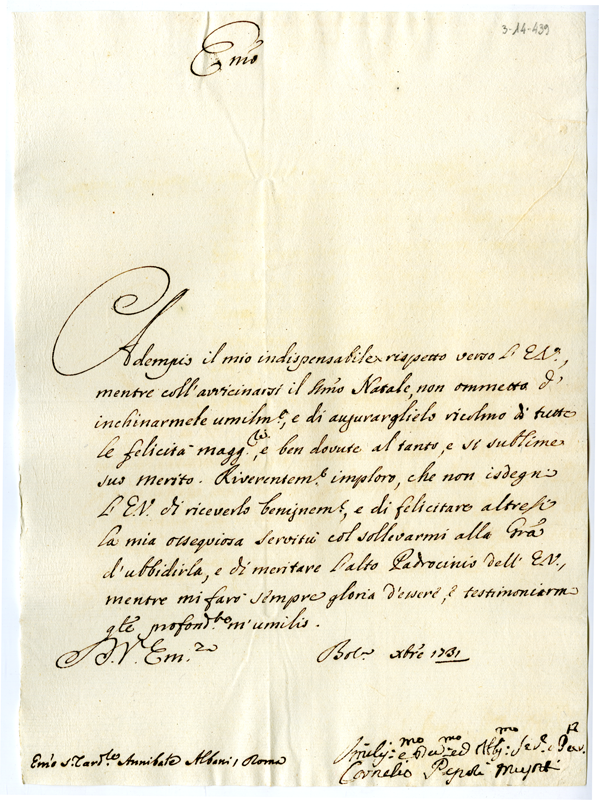 3-14-439
Emo
Adempio il mio indispensabile rispetto verso l'E.V.,
mentre coll'avvicinarsi il Smo Natale, non ommetto d'
inchinarmele umilme, e di augurarglielo ricolmo di tutte
le felicità magg.ri, e ben dovute al tanto, e sì sublime
suo merito. Riverentemte imploro, che non isdegni
l'E.V. di riceverlo benignemte, e di felicitare altresì
la mia ossequiosa servitù col sollevarmi alla Gra
d'ubbidirla, e di meritare l'alto Padrocinio dell'E.V.,
mentre mi farò sempre gloria d'essere, e testimoniarm
gte profondte m'umilio.
D.V. Em.za
Bola xbre 1731
Emo Sr Cardle Annibale Albani, Roma
Umilis:mo e Dev:mo ed Obb:mo Se.r
Cornelio Pepoli